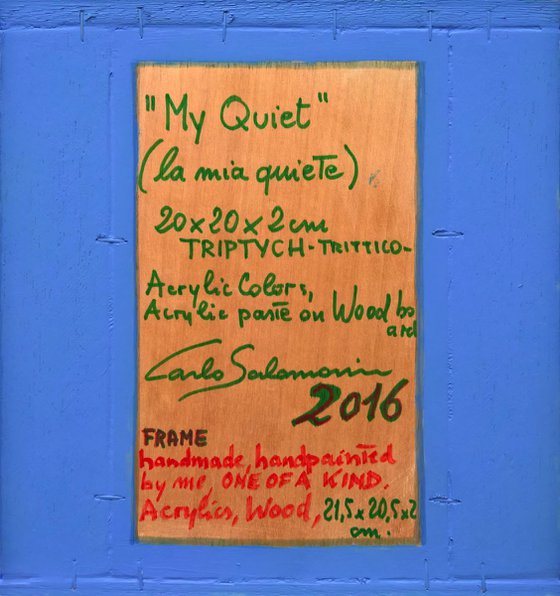 "My Quiet"
(la mia quiete)
20x20x2cm
TRIPTYCH-TRITTICO-
Acrylic Colors,
Acrylic paste on Wood bo
ard
Carlo Salomoni
2016
FRAME
handmade, handpainted
by me, ONE OF A KIND.
Acrylics, Wood, 21,5x20,5x2
cm.